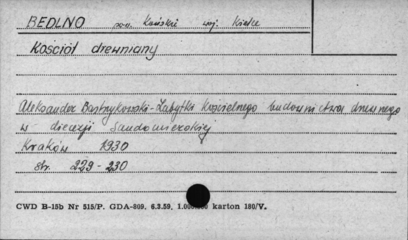 BEDLNO pow. Koński woj. Kielce
Kościół drewniany
Aleksander Bastrzykowski - Zabytki kościelnego budownictwa drewnianego
w diecezji Sandomierskiej
Kraków 1930
str. 229-230
CWD B-15b Nr 515/P. GDA-809. 6.3.59. 1.000.000 karton 180/V.